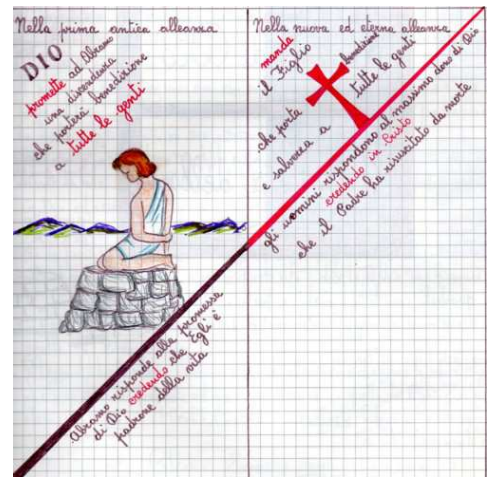 Nella prima antica alleanza
DIO
promette ad Abramo
una discendenza
che porterà benedizione
a tutte le genti
Abramo risponde alla promessa
di Dio credendo che Egli è
padrone della vita
Nella nuova ed eterna alleanza
manda
il Figlio
che porta benedizione
e salvezza a tutte le genti
gli uomini rispondono al massimo dono di Dio
credendo in Cristo
che il Padre ha risuscitato da morte